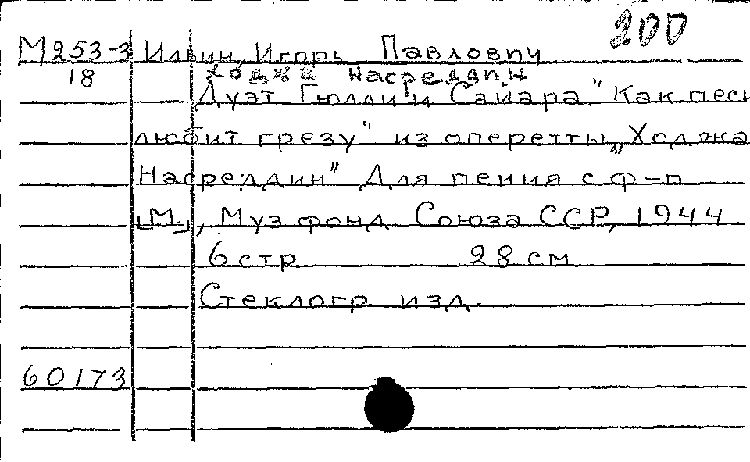 200
М253-3 Ильин, Игорь Павлович
18 Ходжа Насреддин
Дуэт Гюлли и Сайара "Как песн
любит грезу" из оперетты „Ходжа
Насреддин" Для пения с ф-п
[М.], Музфонд Союза ССР, 1944
6 стр 28 см
Стеклогр. изд.
60173